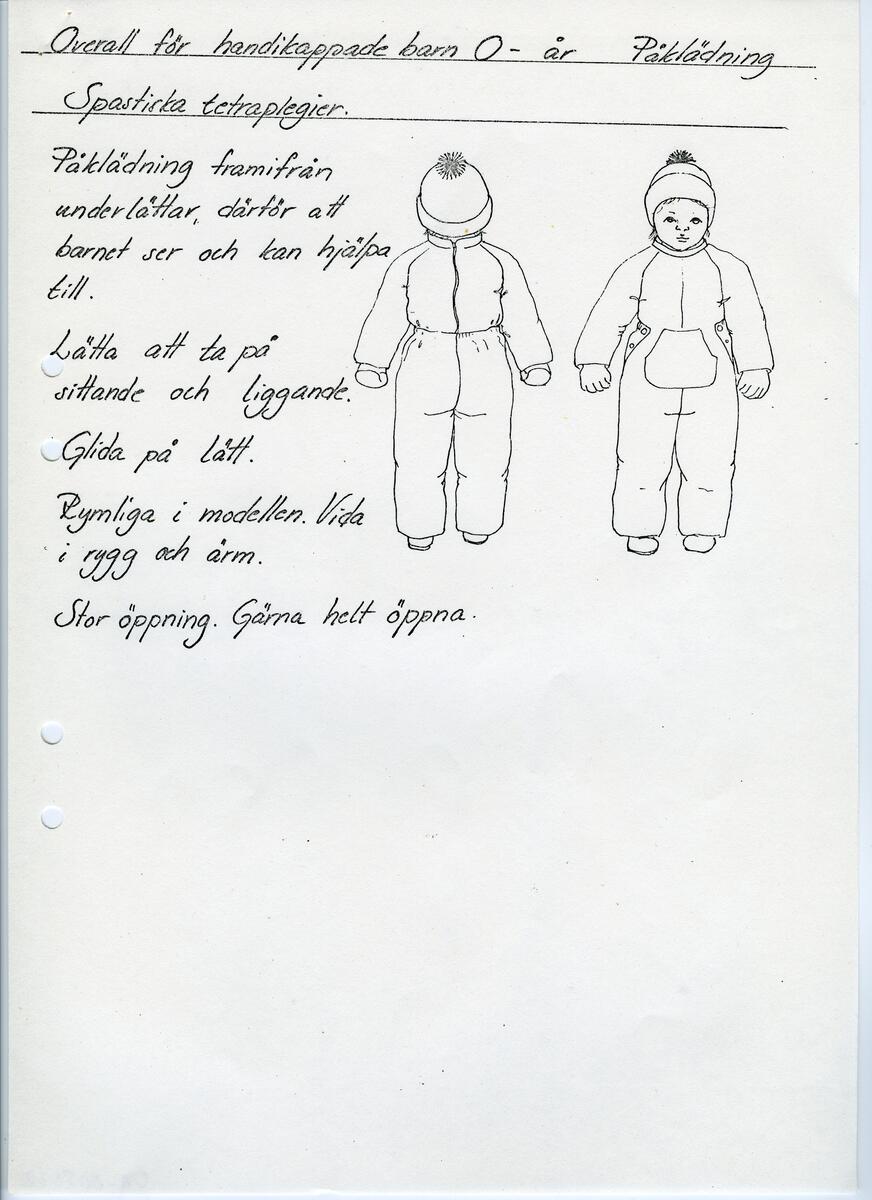 Overall för handikappade barn 0 - år Påklädning
Spastiska tetraplegier.
Påklädning framifrån
underlättar, därför att
barnet ser och kan hjälpa
till.
Lätta att ta på
sittande och liggande.
Glida på lätt.
Rymliga i modellen. Vida
i rygg och ärm.
Stor öppning. Gärna helt öppna.